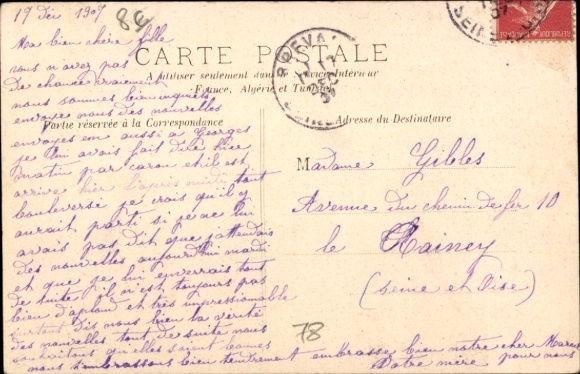 17 Dec 1907
84
CARTE POSTALE
A utiliser seulement dans le Service Intérieur
France, Algérie et Tunisie
Partie réservée à la Correspondance
Adresse du Destinataire
Ma bien chère fille
vous n'avez pas
De chance vraiment
nous sommes bien inquiets
envoye nous des nouvelles
envoyes en aussi a Georges
je lui avais fait dire hier
matin par caron et il est
arrive hier l'après midi tout
bouleversé je crois qu'il y
aurait parti si je ne lui
avais pas dit que j'attendais
des nouvelles aujourd'hui mardi
et que je lui enverrais tout
de suite il n'est toujours pas
bien d'aplond et très impressionable
surtout dis nous bien la vérité
des nouvelles tout de suite nous
souhaitons qu'elles soient bonnes
nous t'embrassons bien tendrement embrasse bien notre cher Marcel
Votre mère pour nous
Madame Gibles
Avenue du chemin de fer 10
le Rainey
(Seine et Oise)
78